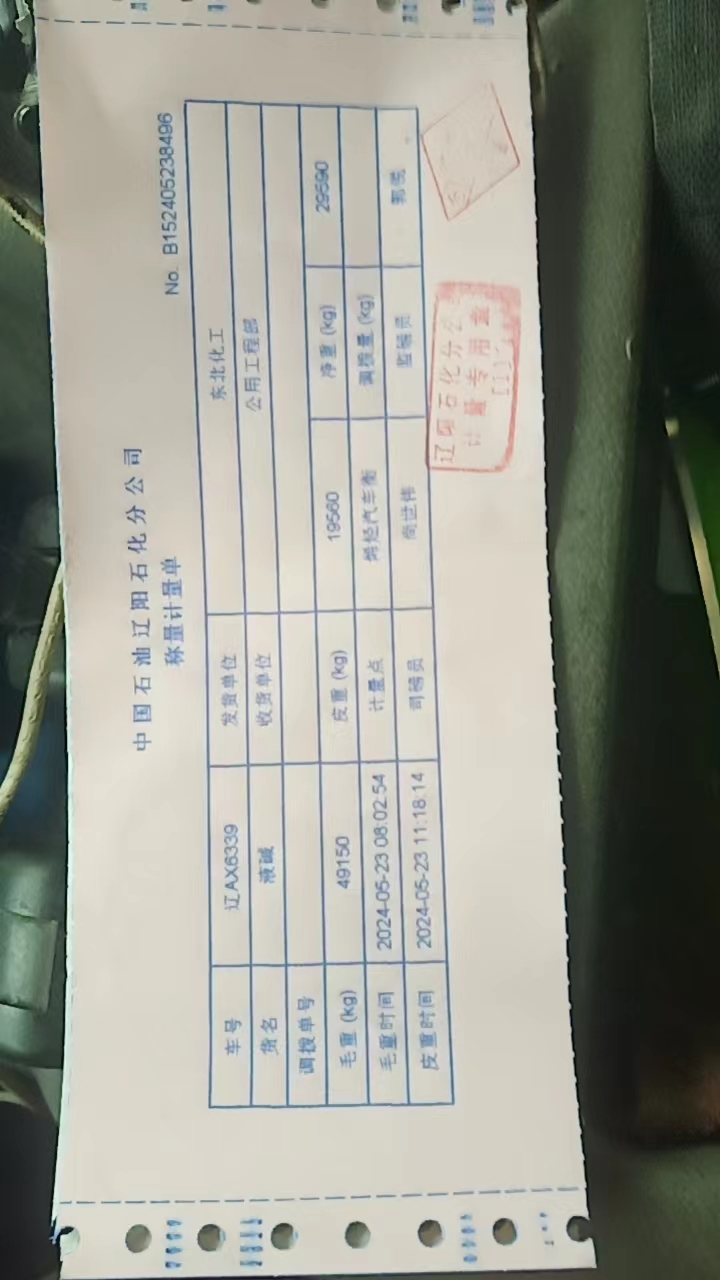 中国石油辽阳石化分公司
称量计量单
No. B152405238496
车号 辽AX6339 发货单位 东北化工
货名 液碱 收货单位 公用工程部
调拨单号
毛重(kg) 49150 皮重(kg) 19560 净重(kg) 29590
毛重时间 2024-05-23 08:02:54 计量点 烯烃汽车衡 调拨量(kg)
皮重时间 2024-05-23 11:18:14 司磅员 尚世伟 监磅员
辽阳石化分公
计量专用章